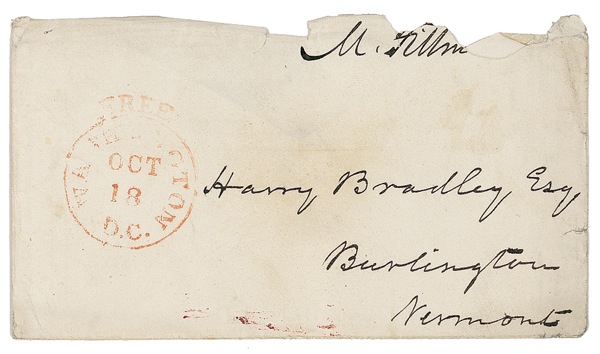 M. Fillm
FREE
WASHINGTON
OCT
18
D.C.
Harry Bradley Esq
Burlington
Vermont